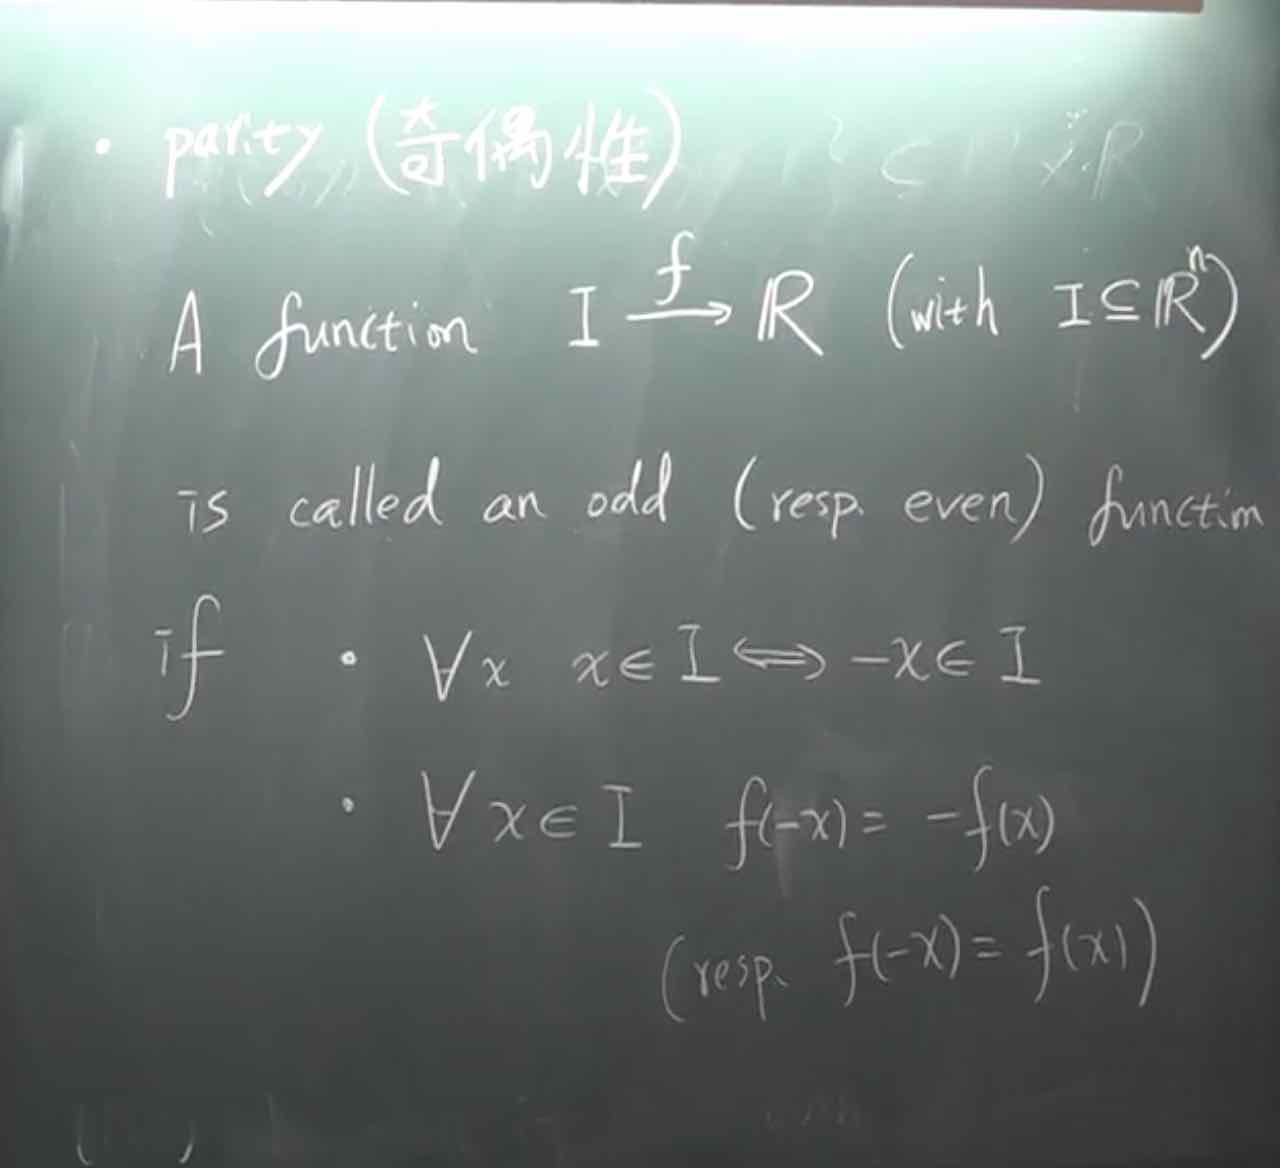 • parity (奇偶性)
A function I --f--> ℝ (with I ⊆ ℝⁿ)
is called an odd (resp. even) function
if • ∀x x∈I ⟺ -x∈I
• ∀x∈I f(-x) = -f(x)
(resp. f(-x) = f(x))